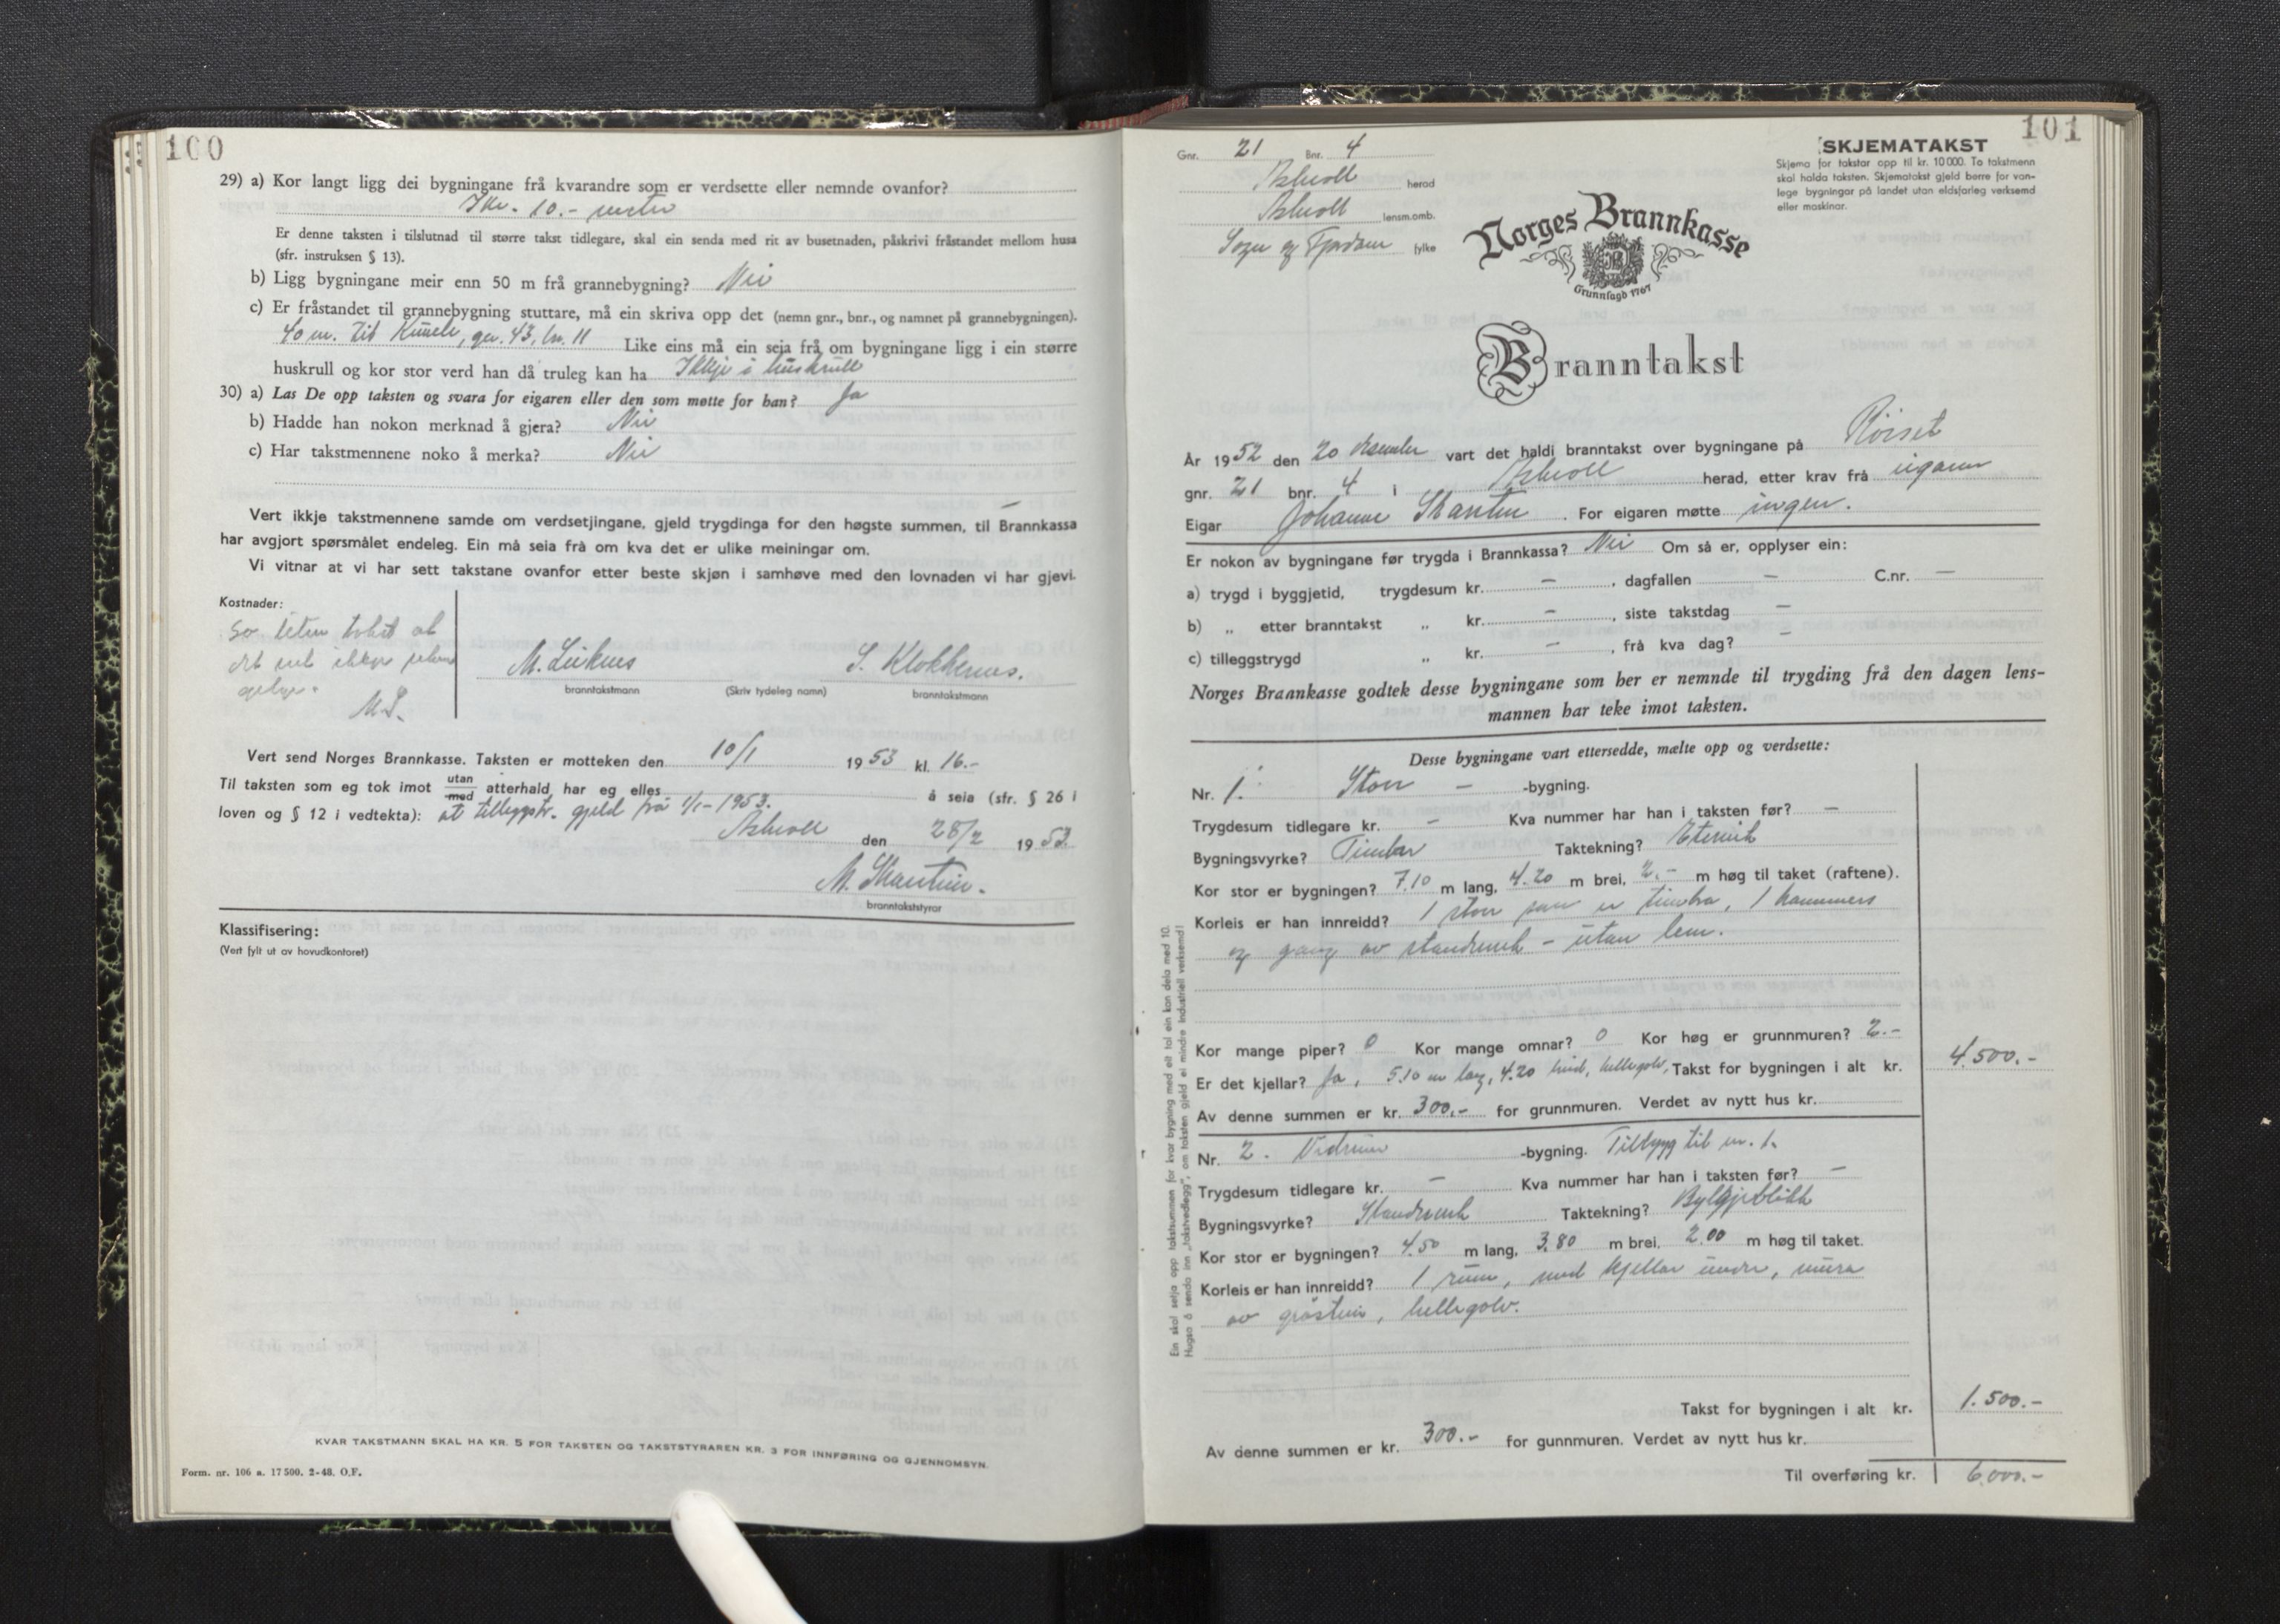 100
29) a) Kor langt ligg dei bygningane frå kvarandre som er verdsette eller nemnde ovanfor?
10.- meter
Er denne taksten i tilslutnad til større takst tidlegare, skal ein senda med rit av busetnaden, påskrivi fråstandet mellom husa
(sfr. instruksen § 13).
b) Ligg bygningane meir enn 50 m frå grannebygning? Nei
c) Er fråstandet til grannebygning stuttare, må ein skriva opp det (nemn gnr., bnr., og namnet på grannebygningen).
40 m. til gnr. 43, bn. 11 Like eins må ein seia frå om bygningane ligg i ein større
huskrull og kor stor verd han då truleg kan ha Ikkje i huskrull
30) a) Las De opp taksten og svara for eigaren eller den som møtte for han? Ja
b) Hadde han nokon merknad å gjera? Nei
c) Har takstmennene noko å merka? Nei
Vert ikkje takstmennene samde om verdsetjingane, gjeld trygdinga for den høgste summen, til Brannkassa
har avgjort spørsmålet endeleg. Ein må seia frå om kva det er ulike meiningar om. –
Vi vitnar at vi har sett takstane ovanfor etter beste skjøn i samhøve med den lovnaden vi har gjevi.
Kostnader:
So liten takst at
det vert ikkje
M.L.
M. Leirnes S. Klokkernes.
branntakstmann (Skriv tydeleg namn) branntakstmann
Vert send Norges Brannkasse. Taksten er motteken den 10/1 1953 kl. 16.-
Til taksten som eg tok imot utan/med atterhald, har eg elles å seia (sfr. § 26 i
loven og § 12 i vedtekta): at tilleggstr. gjeld frå 1/1-1953.
Askvoll den 28/2 1953.
M. Skantin.
branntakststyrar
Klassifisering:
(Vert fylt ut av hovudkontoret)
KVAR TAKSTMANN SKAL HA KR. 5 FOR TAKSTEN OG TAKSTSTYRAREN KR. 3 FOR INNFØRING OG GJENNOMSYN.
Form. nr. 106 a. 17500. 2-48. O.F.
101
Gnr. 21 Bnr. 4
Askvoll herad
Askvoll lensm.omb.
Sogn og Fjordane fylke
SKJEMATAKST
Skjema for takstar opp til kr. 10 000. To takstmenn
skal halda taksten. Skjematakst gjeld berre for van-
lege bygningar på landet utan eldsfarleg verksemd
eller maskinar.
Norges Brannkasse
Grunnlagd 1767
Branntakst
År 1952 den 20 desember vart det haldi branntakst over bygningane på Röiset
gnr. 21 bnr. 4 i Askvoll herad, etter krav frå eigaren
Eigar Johanne Skantin. For eigaren møtte ingen.
Er nokon av bygningane før trygda i Brannkassa? Nei Om så er, opplyser ein:
a) trygd i byggjetid, trygdesum kr. – , dagfallen – C.nr. –
b) „ etter branntakst „ kr. – , siste takstdag –
c) tilleggstrygd „ kr. – , frå kva dag? –
Norges Brannkasse godtek desse bygningane som her er nemnde til trygding frå den dagen lens-
mannen har teke imot taksten.
Desse bygningane vart ettersedde, mælte opp og verdsette:
Nr. 1. Stove – -bygning.
Trygdesum tidlegare kr. – Kva nummer har han i taksten før? –
Bygningsvyrke? Timber Taktekning? Eternit
Kor stor er bygningen? 7.10 m lang, 4.20 m brei, 2.- m høg til taket (raftene).
Korleis er han innreidd? 1 stove som er timbra, 1 kammers
og gang av standverk – utan lem.
Kor mange piper? 0 Kor mange omnar? 0 Kor høg er grunnmuren? 2.-
Er det kjellar? Ja, 5.10 m lang, 4.20 breid, hellegolv, Takst for bygningen i alt kr. 4.500.-
Av denne summen er kr. 300.- for grunnmuren. Verdet av nytt hus kr.
Nr. 2. Vedrum -bygning. Tilbygg til nr. 1.
Trygdesum tidlegare kr. – Kva nummer har han i taksten før? –
Bygningsvyrke? Standverk Taktekning? Bylgjeblikk
Kor stor er bygningen? 4.50 m lang, 3.80 m brei, 2.00 m høg til taket.
Korleis er han innreidd? 1 rum, med kjellar under, mura
av gråstein, hellegolv.
Takst for bygningen i alt kr. 1.500.-
Av denne summen er kr. 300.- for gunnmuren. Verdet av nytt hus kr.
Til overføring kr. 6.000.-
Ein skal setja opp takstsummen for kvar bygning med eit tal ein kan dela med 10.
Hugso å senda inn „takstvedlegg”, om taksten gjeld ei mindre industriell verksemd!